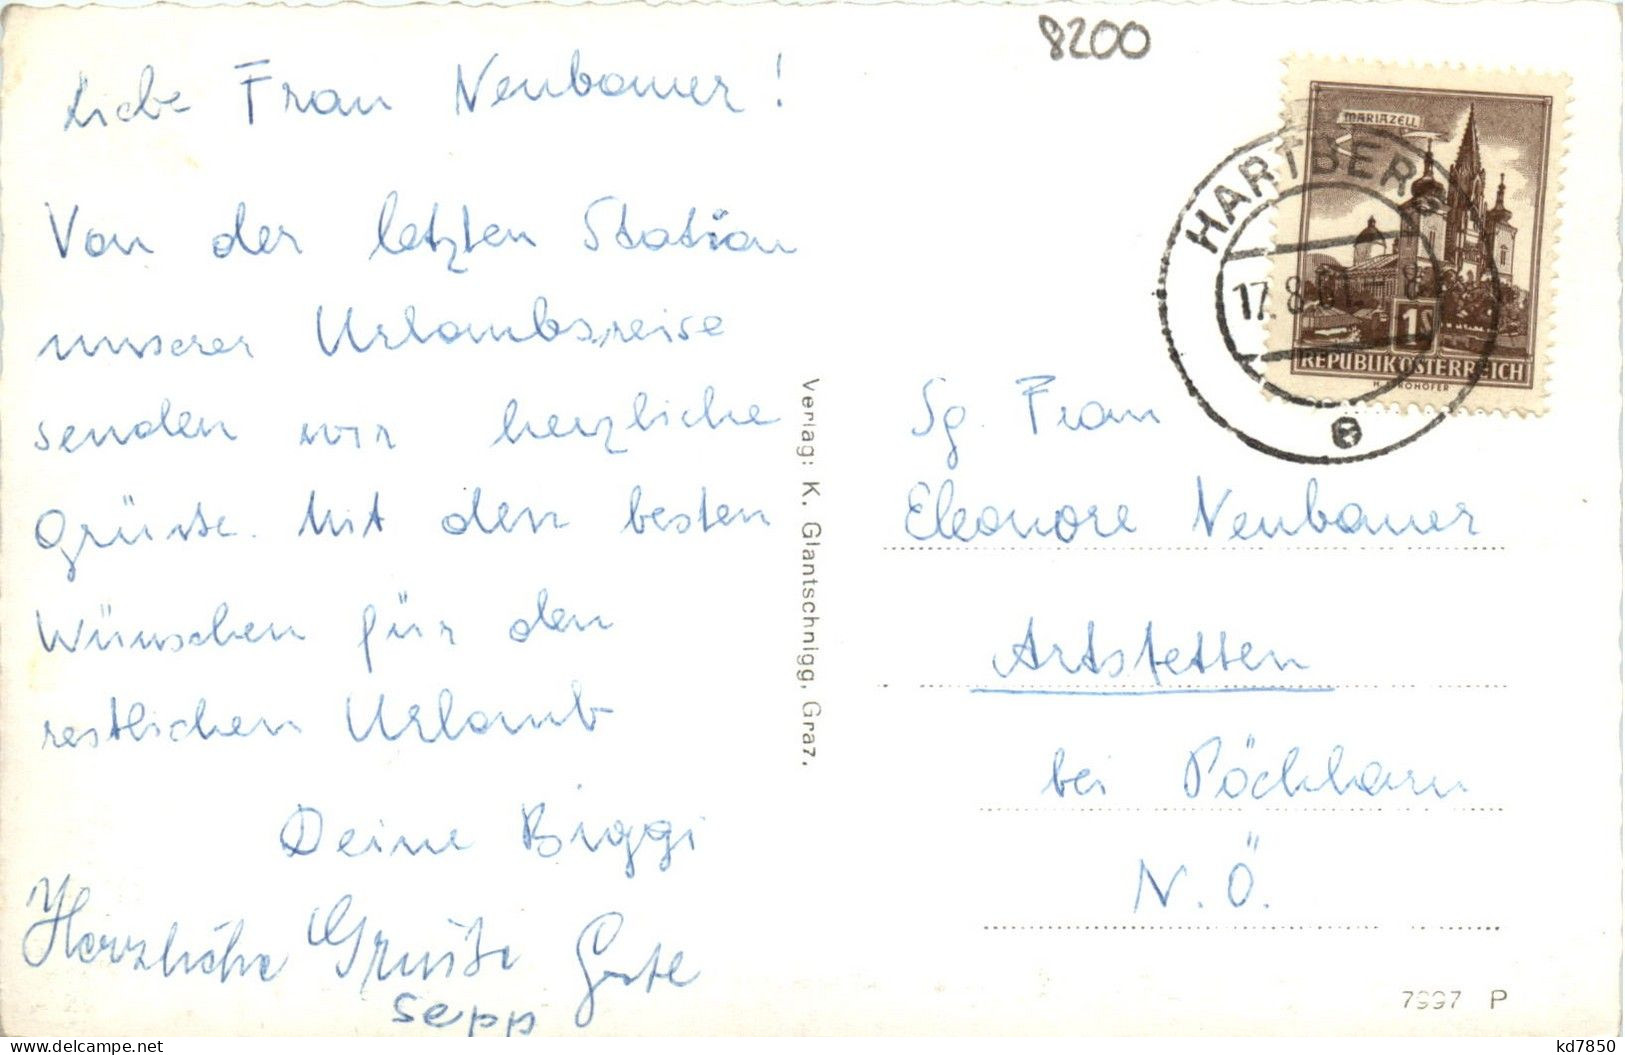 8200
Liebe Frau Neubauer!
Von der letzten Station
unserer Urlaubsreise
senden wir herzliche
Grüsse. Mit den besten
Wünschen für den
restlichen Urlaub
Deine Biggi
Herzliche Grüße
Sepp
Verlag: K. Glantschnigg, Graz.
MARIAZELL
HARTBERG
17.8.61.-8
1S
REPUBLIK ÖSTERREICH
e
Sg. Frau
Eleonore Neubauer
Artstetten
bei Pöchlarn
N.Ö.
7997 P
www.delcampe.net
kd7850